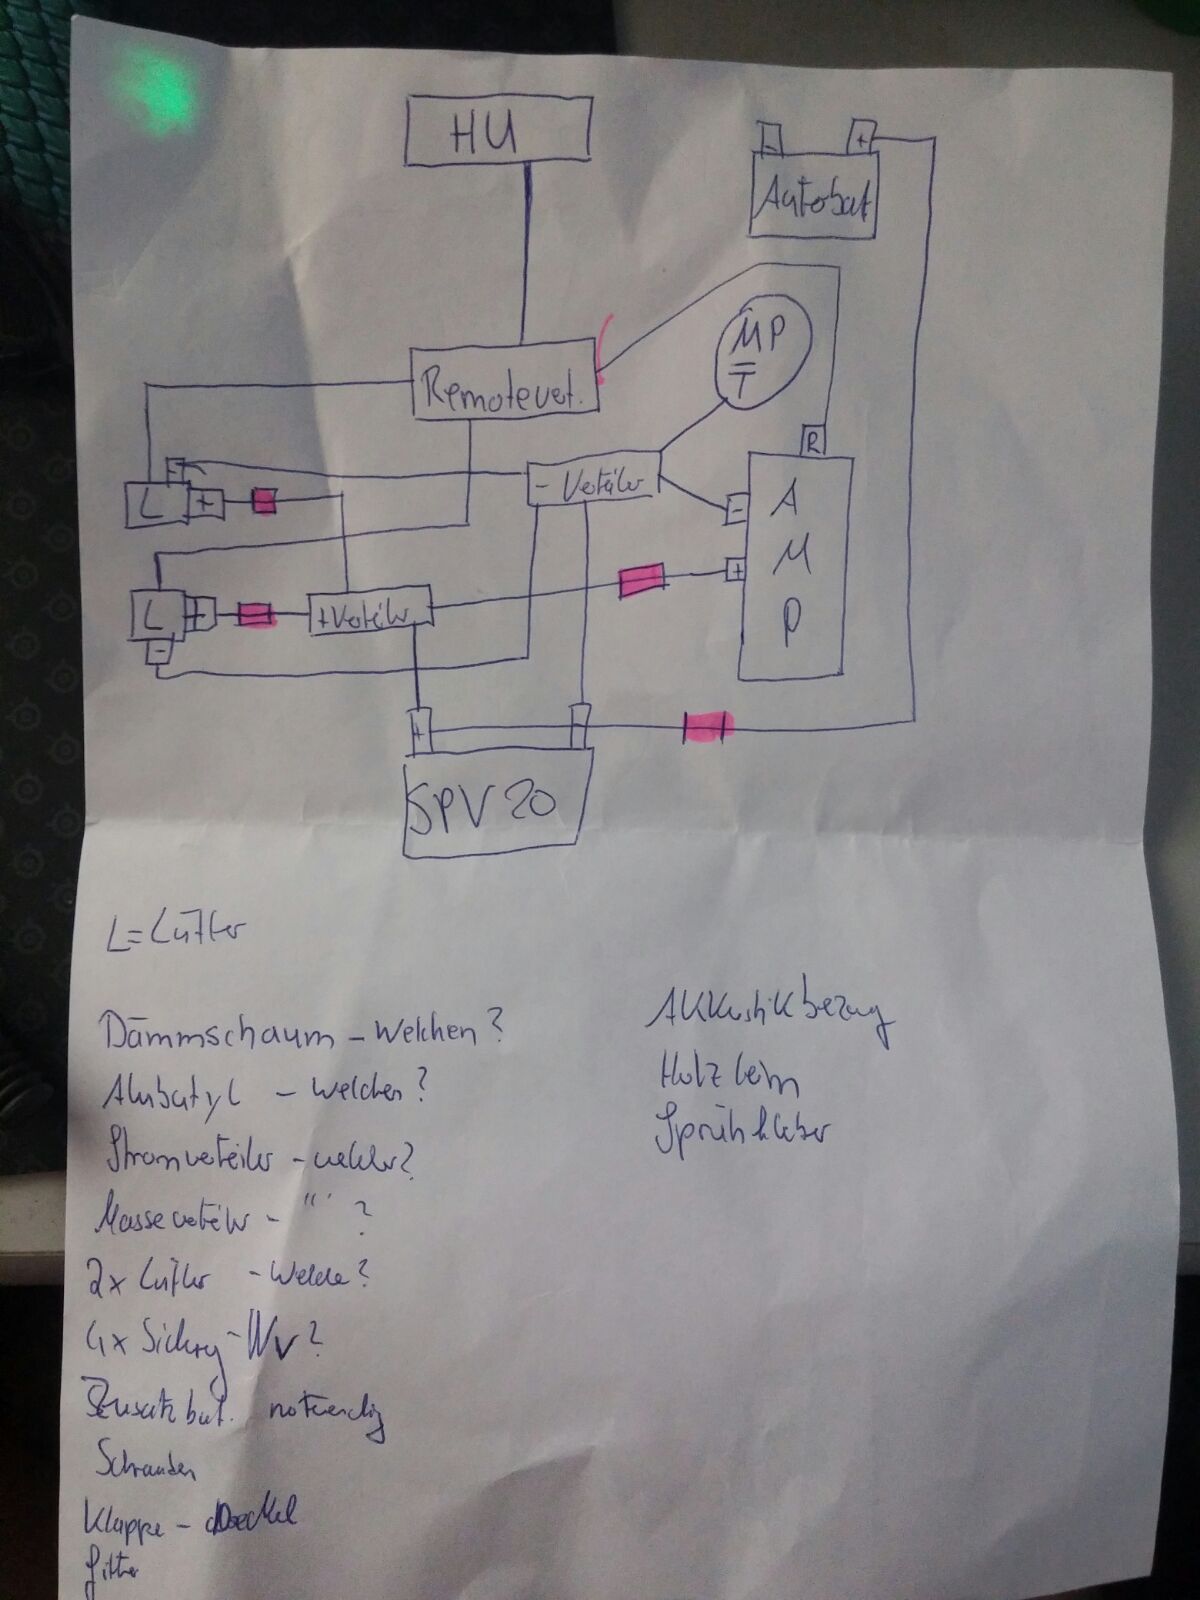 HU
- +
Autobat
MP
T
Remotevet.
R
-
L +
- Verteiler
-
A
M
P
+
L +
-
+Verteiler
+
SPV 20
L = Lüfter
Dämmschaum - Welchen?
Alubutyl - welchen?
Stromverteiler - welcher?
Masseverteiler - " ?
2x Lüfter - Welche?
4x Sichrg - Wv?
Zusatzbat. notwendig
Schrauben
Klappe - Deckel
Gitter
AKKustikbezug
Holzleim
Sprühkleber